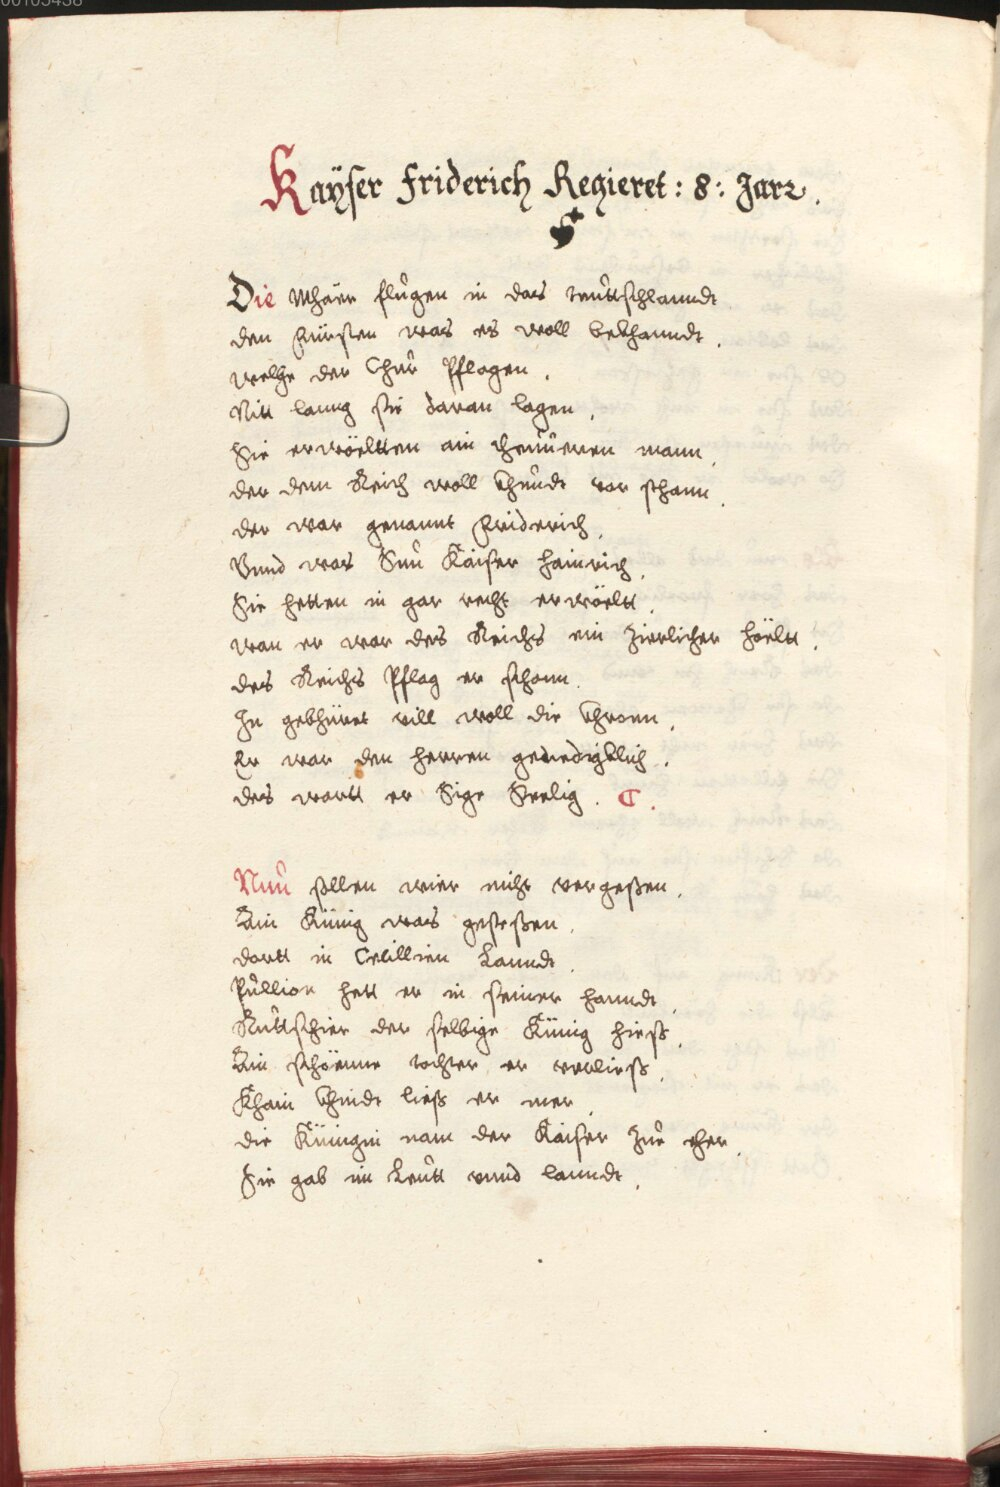 00105438
Kaÿser Friderich Regieret: 8: Jarz.
Die Mhäer flugen in das teuttschlanndt
den Fürsten was es woll bekhanndt.
welche der Chur Pflagen.
Nitt lanng sie daran lagen.
Sie erwöeltten ain theüueren mann.
der dem Reich woll khundt vor schann.
der war genannt Friderich.
Vnnd was Sun Kaiser Hainrich.
Sie hetten in gar recht erwöelt.
wan er war des Reichs ein Zierlicher höeltt.
des Reichs Pflag er schonn.
In gebhüret vill woll die khronn.
Er war den herren genedigklich.
des wartt er Sige Seelig. C.
Nun sollen wier nicht vergeßen.
Ain Künig was geseßen.
dortt in Cecillien Lanndt.
Pullion hett er in seiner hanndt.
Ruttschier der selbige Künig hieß.
Ain schöenne tochter er verließ.
Khain khindt ließ er mer.
die Künigin nam der Kaiser Zur eher.
Sie gab im Leutt vnnd lanndt.